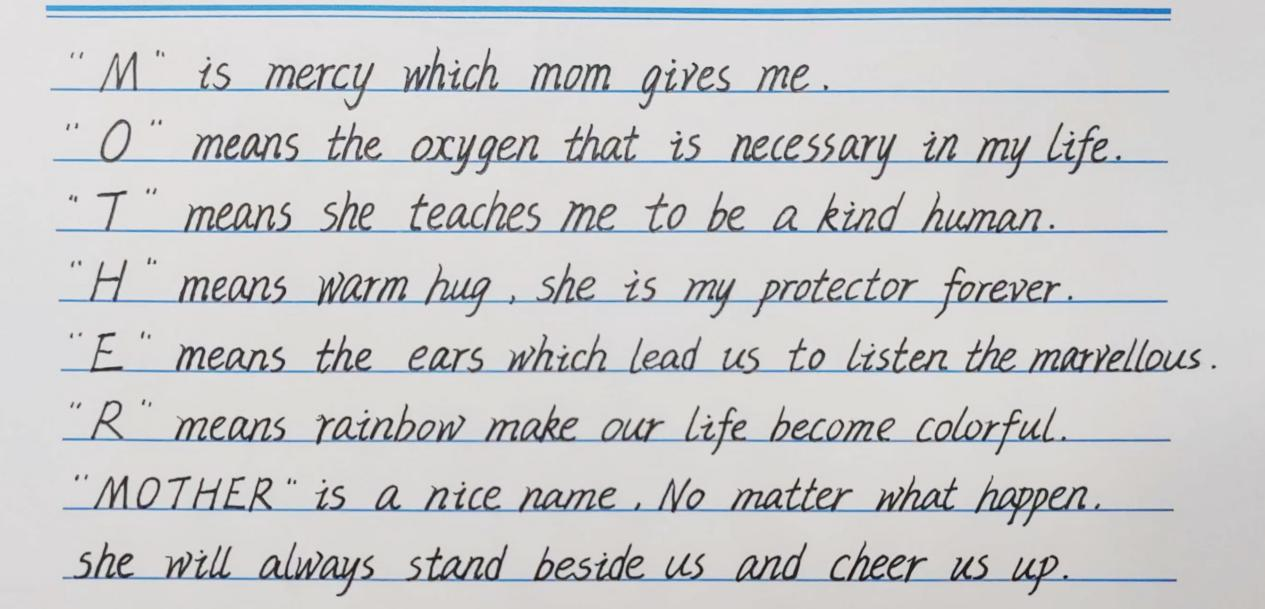 "M" is mercy which mom gives me.
"O" means the oxygen that is necessary in my life.
"T" means she teaches me to be a kind human.
"H" means warm hug, she is my protector forever.
"E" means the ears which lead us to listen the marvellous.
"R" means rainbow make our life become colorful.
"MOTHER" is a nice name. No matter what happen.
she will always stand beside us and cheer us up.